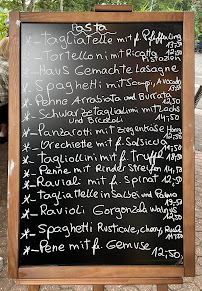 Pasta
* Tagliatelle mit f. Pfifferling
13,50
* Tortelloni mit Ricotta
Pistazien 12,50
* Haus Gemachte Lasagne
* Spaghetti mit Scampi, Avocado
13,50
* Penne Arrabiata und Burrata
12,50
* Schwarze Tagliolini mit Lachs
Und Broccoli 14,50
* Panzarotti mit Ziegenkäse Honig
12,50
* Orechiette mit f. Salsiccia
14,50
* Tagliollini mit f. Trüffel
18,50
* Penne mit Rinder Streifen 14,50
* Ravioli mit f. Spinat 12,50
* Tagliatelle in Salbei und
12,50
* Ravioli Gorgonzola
12,50
* Spaghetti Rusticule,
11,50
* Pene mit f. Gemüse 12,50,